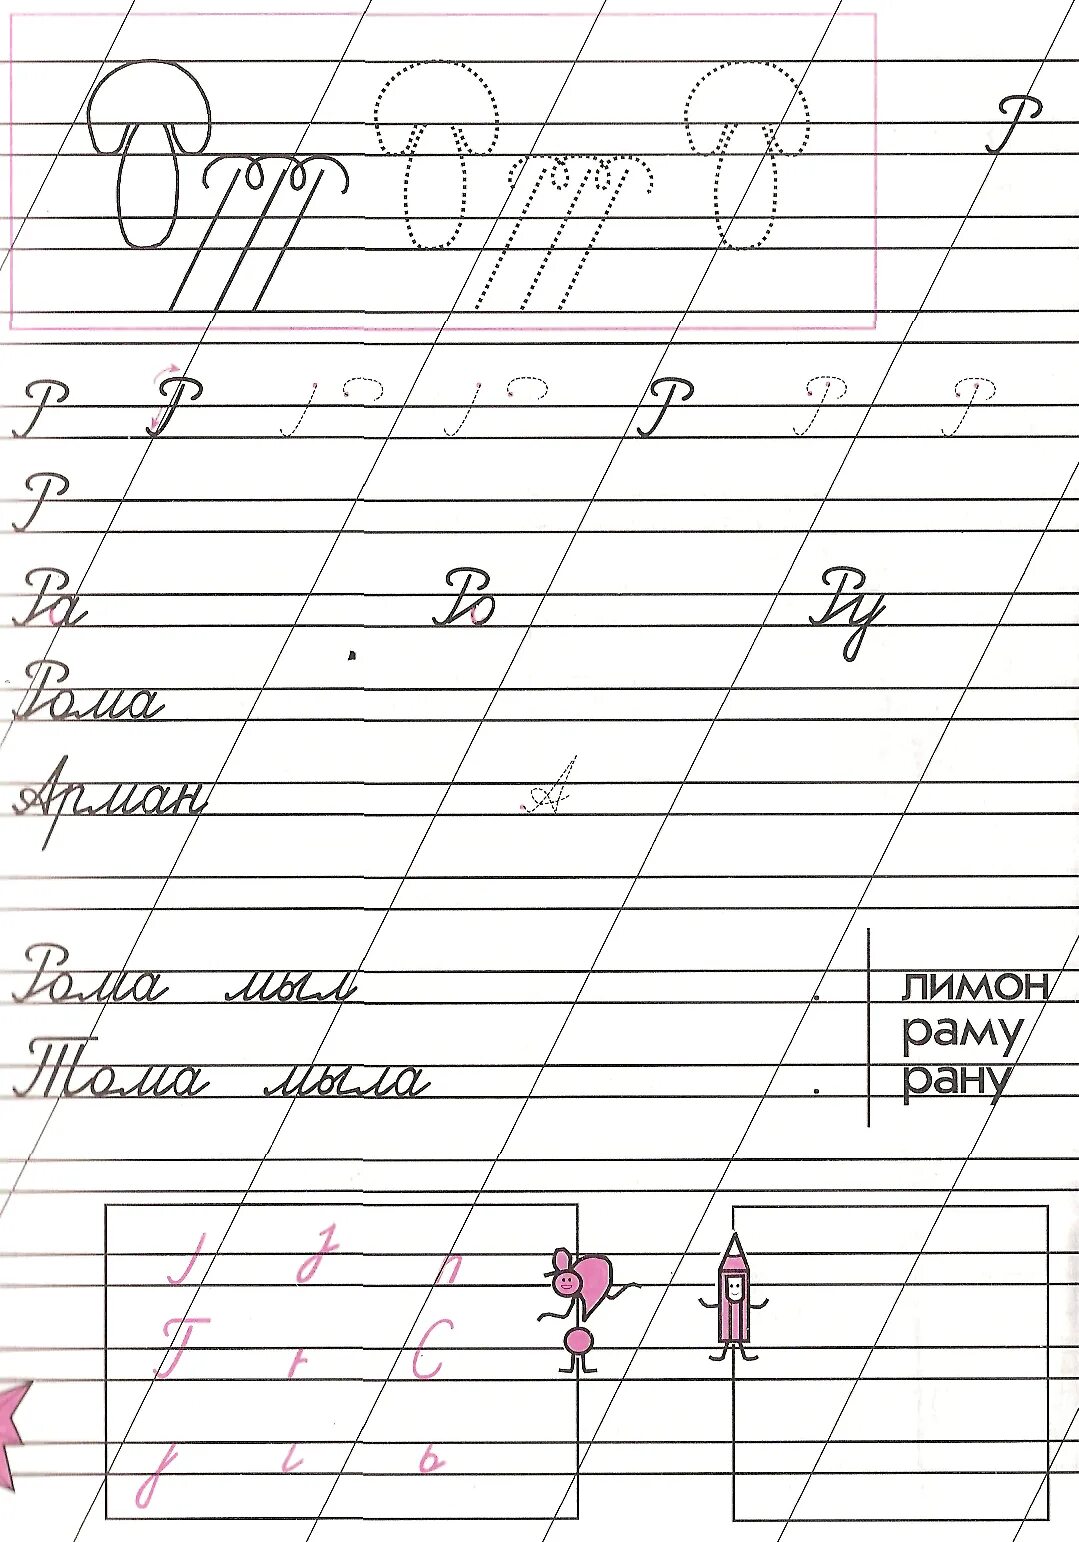 Р
Р Р Р Р Р
Р
Ра Ро Ру
Рома
Арман А
Рома мыл . лимон
раму
Тома мыла . рану